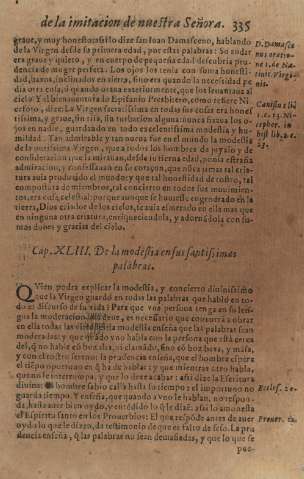 de la imitacion de nuestra Señora. 335
graue, y muy honesto: assi lo dize san Iuan Damasceno, hablando
de la Virgen desde su primera edad, por estas palabras: Su andar
era graue y quieto, y en cuerpo de pequeña edad descubria pru-
dencia de muger perfeta. Los ojos los tenia con suma honesti-
dad, baxos, inclinados en tierra, sino era quando la necessidad pe-
dia otra cosa, ò quando oraua exteriormente, que los leuantaua al
cielo. Y el bienauenturado Epifanio Presbitero, como refiere Ni-
ceforo, dize: La Virgen sacratissima en todas sus cosas era hones-
tissima, y graue, sin risa, sin turbacion alguna: nunca fixaua los o-
jos en nadie, guardando en todo excelentissima modestia y hu-
mildad. Tan admirable y tan nueua fue en el mundo la modestia
de la purissima Virgen, que a todos los hombres de juyzio y de
consideracion que la mirauan, desde su tierna edad, ponia estraña
admiracion, y confessauan en su coraçon, que nũca jamas tal cria-
tura auia produzido el mundo y que tal honestidad de rostro, tal
compostura de miembros, tal concierto en todos sus mouimien-
tos, era cosa celestial: porque aunque se huuiesse engendrado en la
tierra, Dios criador de los cielos, le auia esmerado en ella mas que
en ninguna otra criatura, enriqueciendola, y adornãdola con su-
mos dones y gracias del cielo.
D. Damasce-
nus oratio-
ne 1. de Na-
tiuit. Virgi-
nis.
Canisius lib
1. c. 13. Ni-
cephor. in
hist lib. 2. c.
23.
Cap. XLIII. De la modestia en sus santissimas
palabras.
QVien podra explicar la modestia, y concierto diuinissimo
que la Virgen guardò en todas las palabras que hablò en to-
do el discurso de su vida? Para que vna persona tenga en su len-
gua la moderacion que deue, es necessario que concurra a obrar
en ella todas las virtudes: la modestia enseña que las palabras sean
moderadas, y que quãdo vno habla con la persona que està cerca
del, q̃ no hable en boz alta, ni clamãdo, sino cõ boz baxa, y mãsa,
y con el rostro sereno: la prudencia enseña, que el hombre espere
el tiẽpo oportuno en q̃ ha de hablar: y que mientras otro habla,
que no le interrompa, y que lo dexe acabar: assi dize la Escritura
diuina: El hombre sabio calla hasta su tiempo: el importuno no
guarda tiempo. Y enseña, que quando a vno le hablan, no respon-
da, hasta auer bien oydo, y entẽdido lo q̃ le dizẽ: assi lo amonesta
el Espiritu santo en los Prouerbios: El que respõde antes de auer
oydo lo que le dizen, da testimonio de que es falto de seso. La pru
dencia enseña, q̃ las palabras no sean demasiadas, y que lo que se
pue-
Ecclesi. 20.
Prouer. 18.